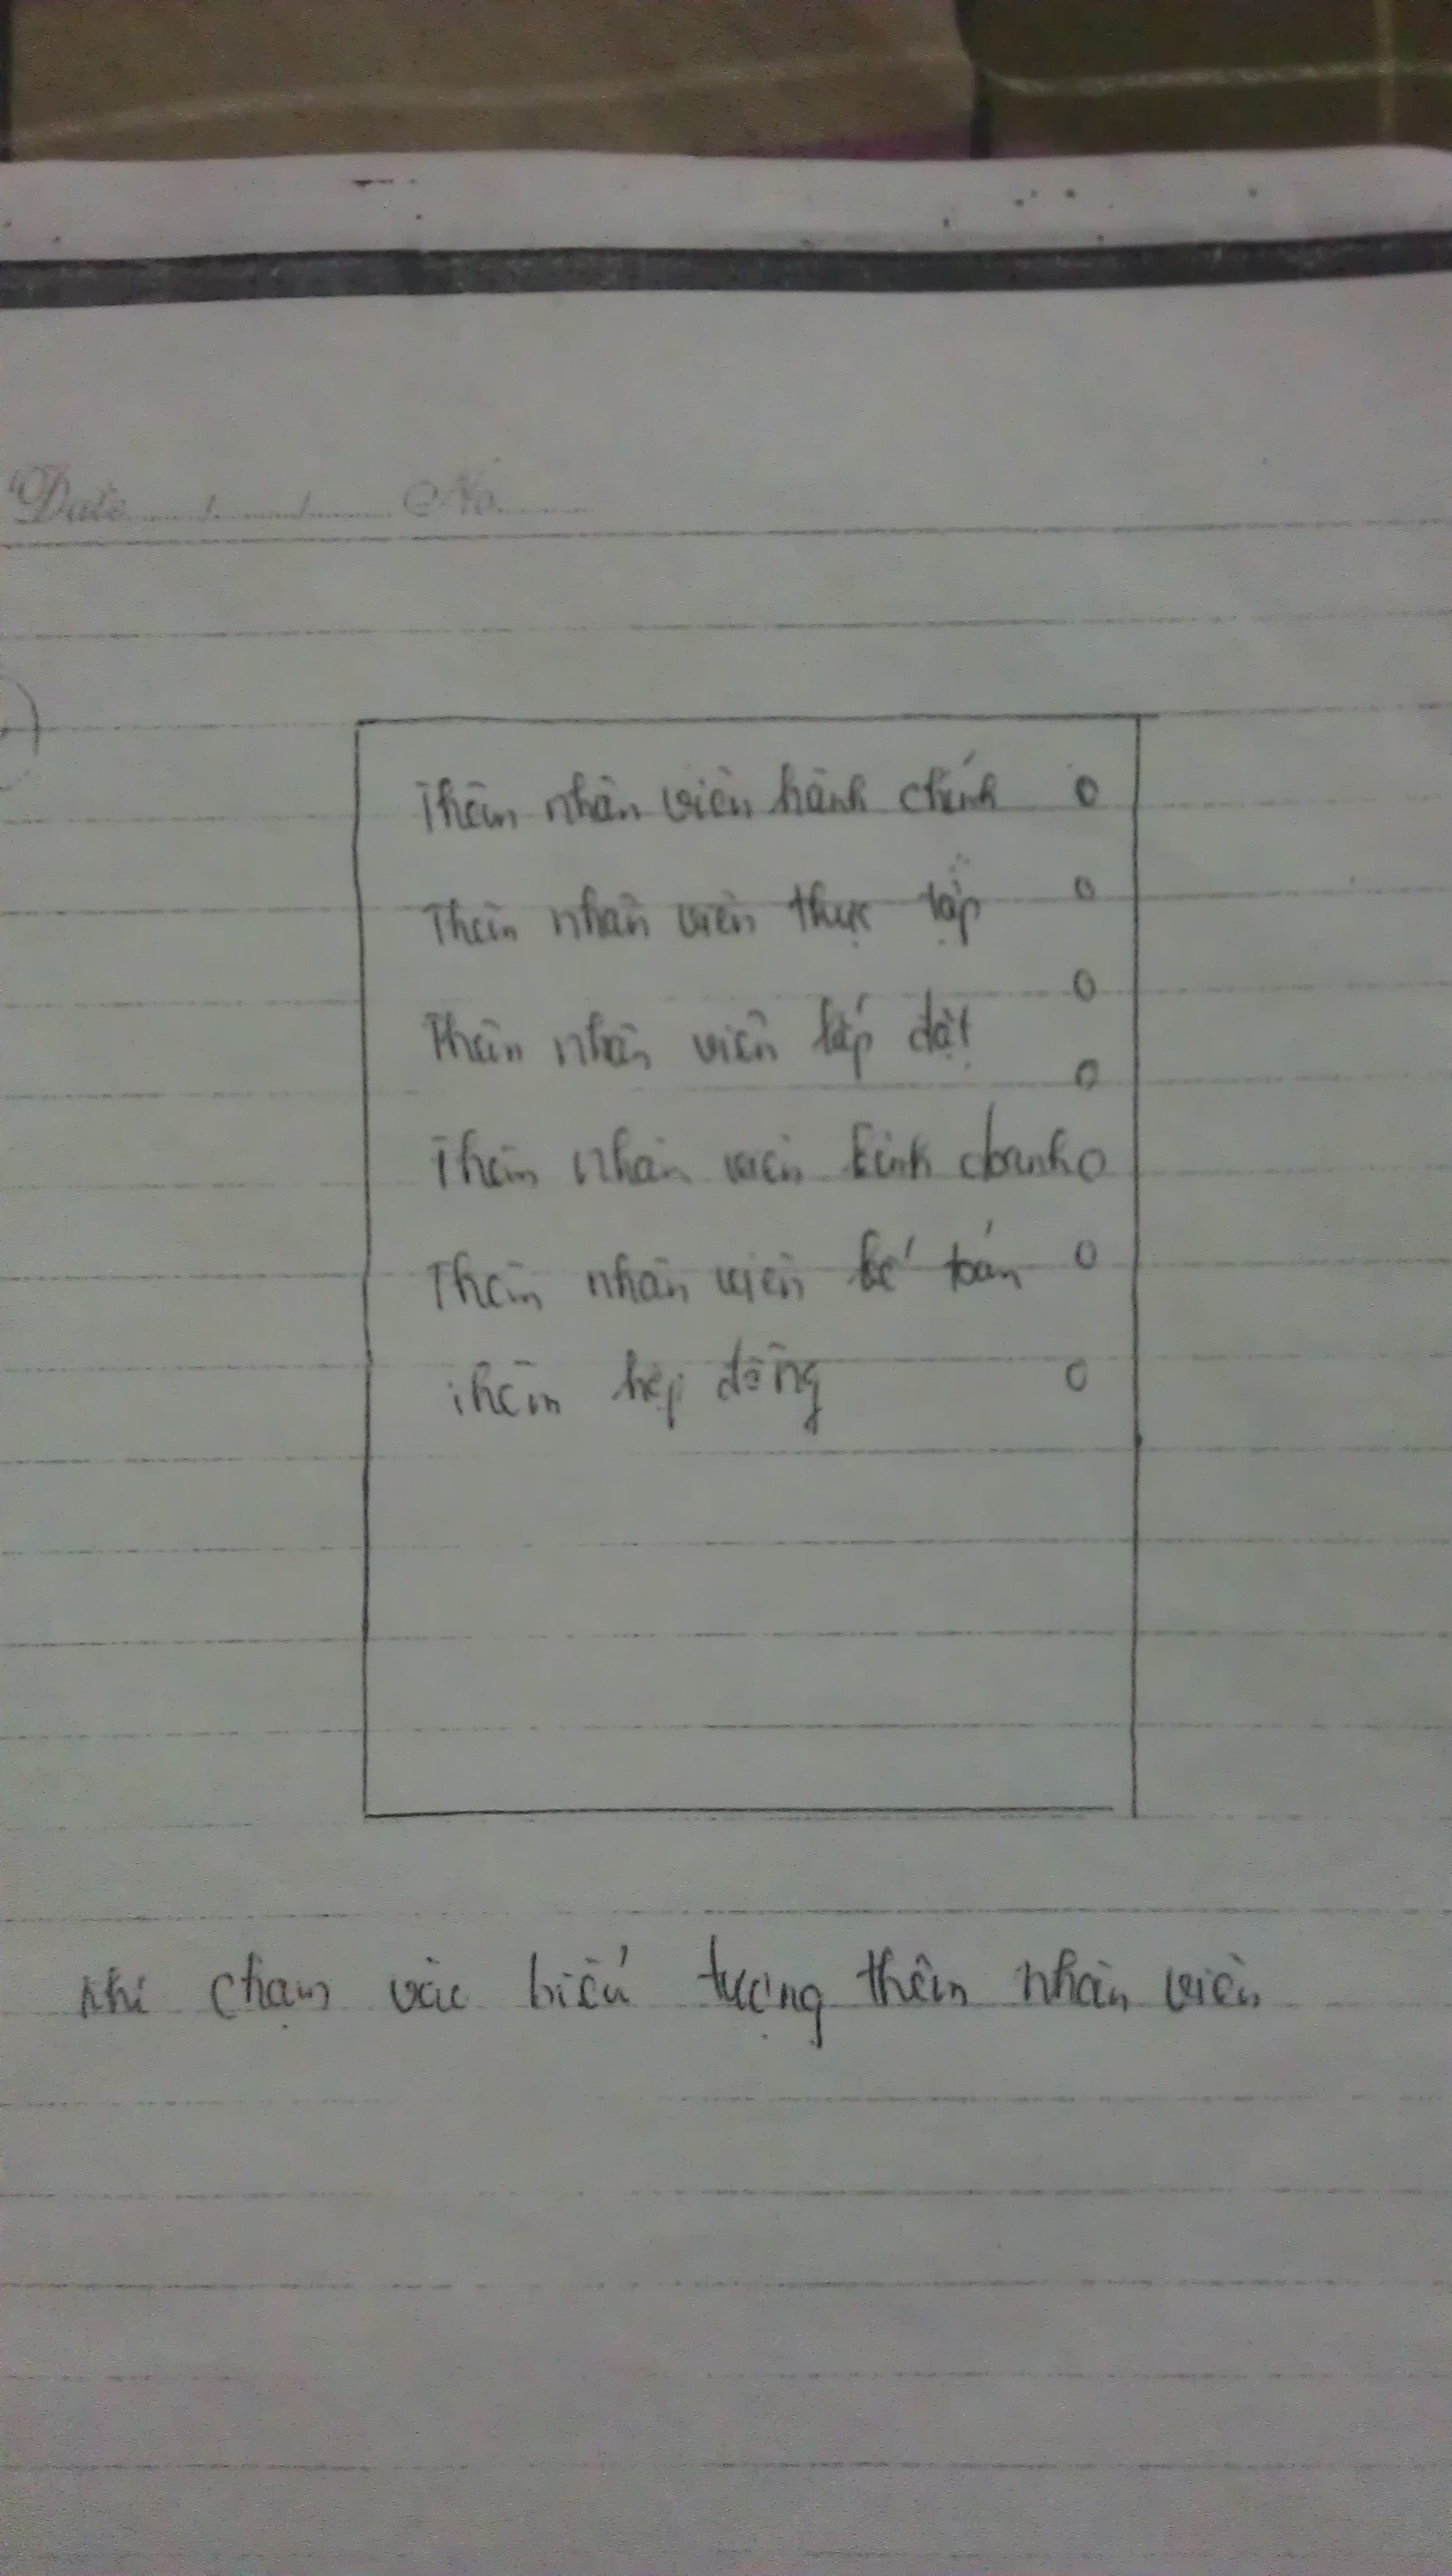 Date ....../....../...... No. ......
Thêm nhân viên hành chính o
Thêm nhân viên thực tập o
o
Thêm nhân viên lắp đặt
o
Thêm nhân viên kinh doanh o
Thêm nhân viên kế toán o
Thêm hợp đồng o
Khi chạm vào biểu tượng thêm nhân viên